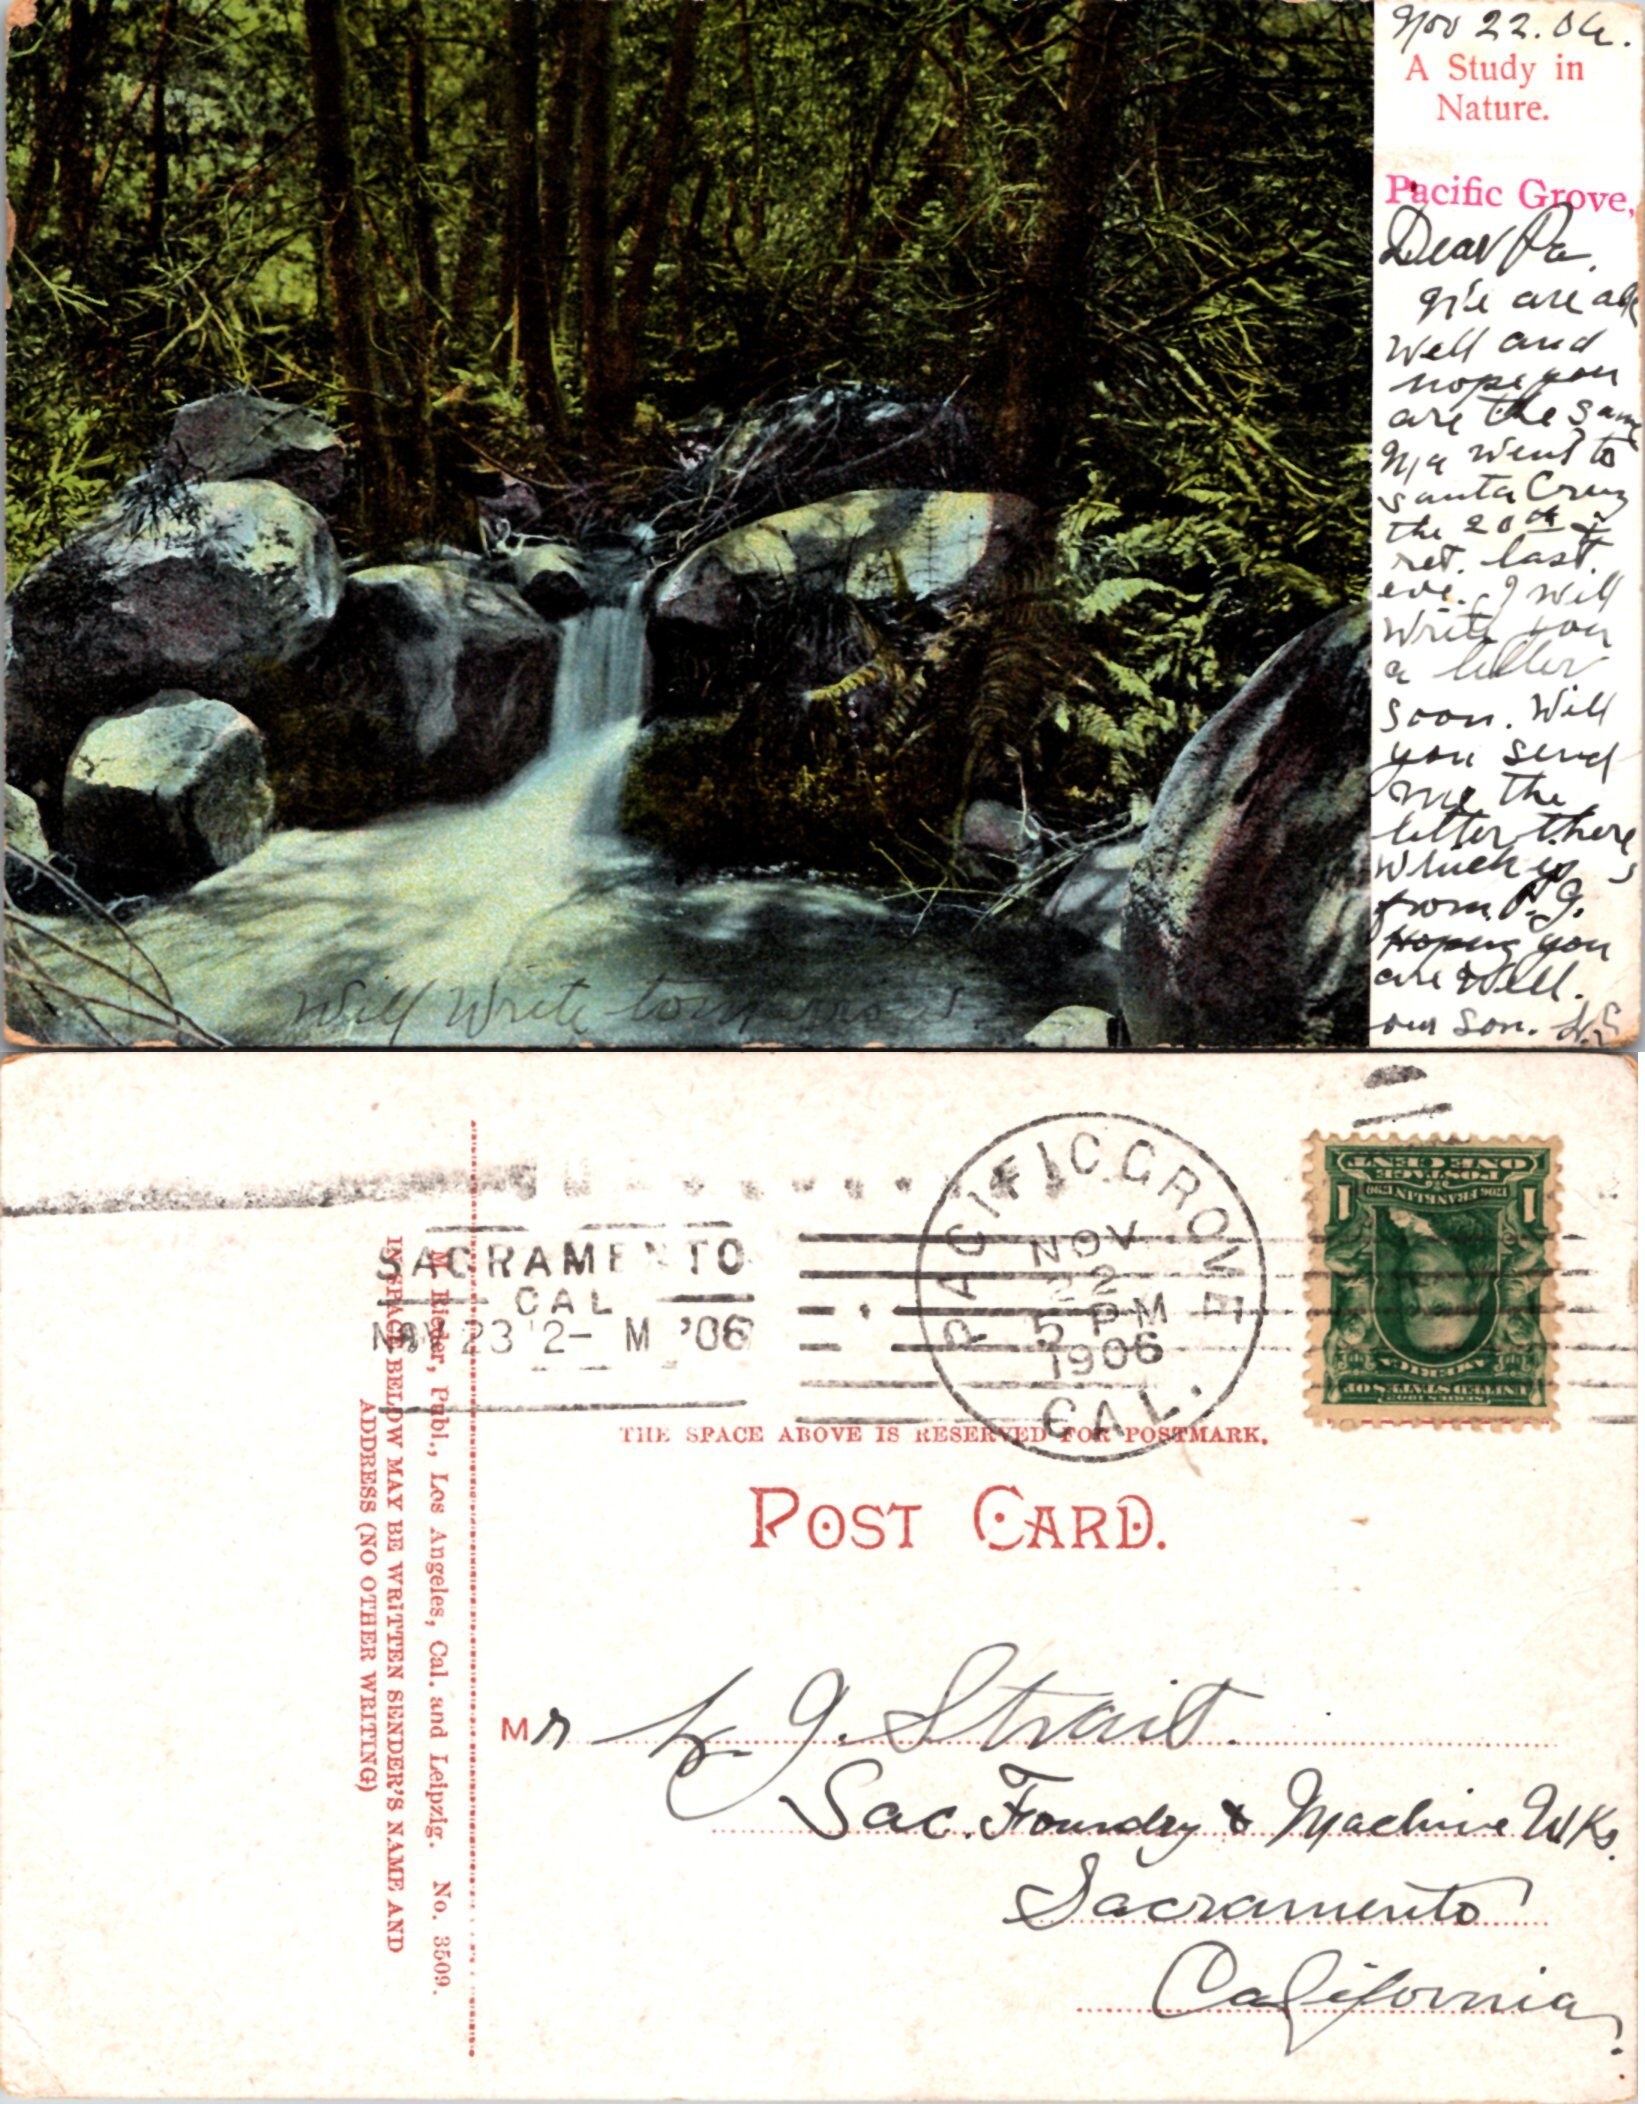 Nov 22. 06.
A Study in
Nature.
Pacific Grove,
Dear Pa,
We are all
well and
hope you
are the same
Ma went to
Santa Cruz
the 20th &
ret. last
eve. I will
write you
a letter
soon. Will
you send
me the
letter there
which is
from P.G.
Hoping you
are well.
our son.
Will write tomorrow.
SACRAMENTO
CAL
NOV 23 12- M '06
PACIFIC GROVE
NOV
22
5 PM
1906
CAL.
ONE CENT
POSTAGE
1706 FRANKLIN 1790
1 1
AMERICA
UNITED STATES OF
THE SPACE ABOVE IS RESERVED FOR POSTMARK.
POST CARD.
M. Rieder, Publ., Los Angeles, Cal. and Leipzig. No. 3509.
IN SPACE BELOW MAY BE WRITTEN SENDER'S NAME AND
ADDRESS (NO OTHER WRITING)
Mr G. Strait.
Sac. Foundry & Machine Wks.
Sacramento
California.